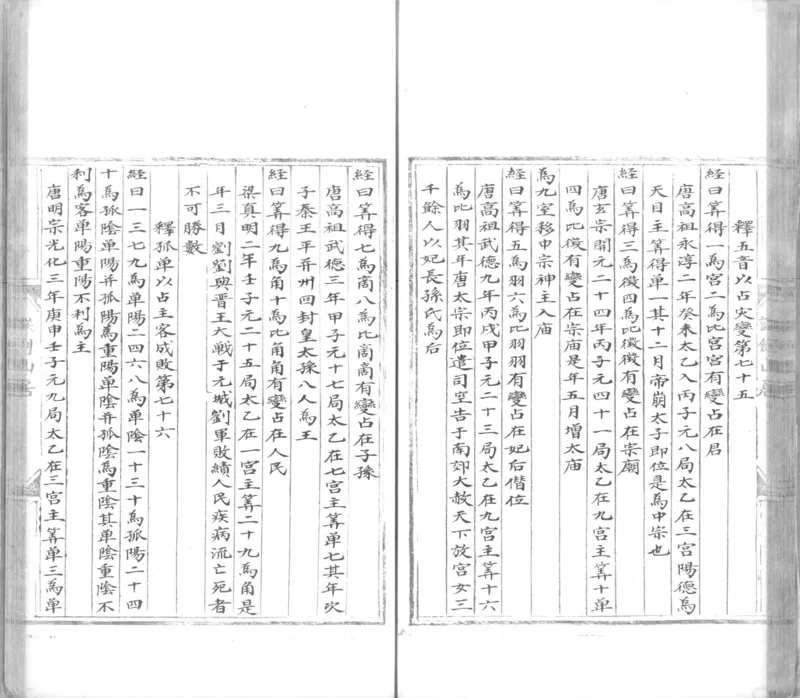 釋五音以占灾變第七十五
經曰筭得一為宫二為比宫宫有變占在君
唐高祖永淳二年癸未太乙入丙子元八局太乙在三宫陽德為
天目主筭得单一其十二月帝崩太子即位是為中宗也
經曰筭得三為徴四為比徴徴有變占在宗廟
唐玄宗開元二十四年丙子元四十一局太乙在九宫主筭十单
四為比徴有變占在宗庙是年五月增太庙
為九室移中宗神主入庙
經曰筭得五為羽六為比羽羽有變占在妃后僣位
唐高祖武德九年丙戌甲子元二十三局太乙在九宫主筭十六
為比羽其年唐太宗即位遣司空告于南郊大赦天下放宫女三
千餘人以妃長孫氏為后
經曰筭得七為商八為比商商有變占在子孫
唐高祖武德三年甲子元十七局太乙在七宫主筭单七其年次
子秦王平并州四封皇太孫八人為王
經曰筭得九為角十為比角角有變占在人民
梁真明二年壬子元二十五局太乙在一宫主筭二十九為角是
年三月劉劉與晋王大戦于元城劉軍敗績人民疾病流亡死者
不可勝數
釋孤单以占主客成敗第七十六
經曰一三七九為单陽二四六八為单陰一十三十為孤陽二十四
十為孤陰单陽并孤陽為重陽单陰并孤陰為重陰其单陰重陰不
利為客单陽重陽不利為主
唐明宗光化三年庚申壬子元九局太乙在三宫主筭单三為单